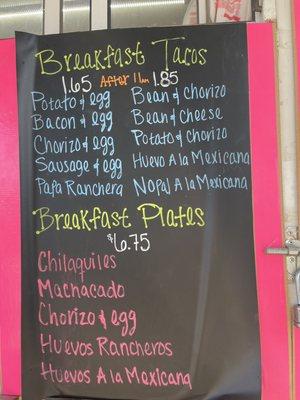 Breakfast Tacos
1.65 After 11am 1.85
Potato & egg
Bacon & egg
Chorizo & egg
Sausage & egg
Papa Ranchera
Bean & Chorizo
Bean & Cheese
Potato & Chorizo
Huevo A la Mexicana
Nopal A la Mexicana
Breakfast Plates
$6.75
Chilaquiles
Machacado
Chorizo & egg
Huevos Rancheros
Huevos A la Mexicana